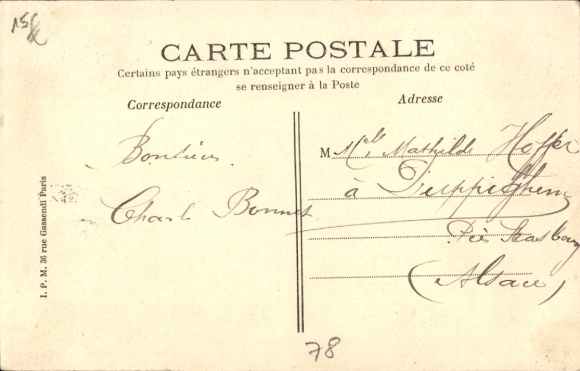 15
CARTE POSTALE
Certains pays étrangers n'acceptant pas la correspondance de ce coté
se renseigner à la Poste
Correspondance
Adresse
M elle Mathilde Hoffer
Bonsieurs
à Duppigheim
Charl Bonnet
Près Strasbourg
(Alsace)
I. P. M. 36 rue Gassendi Paris
78